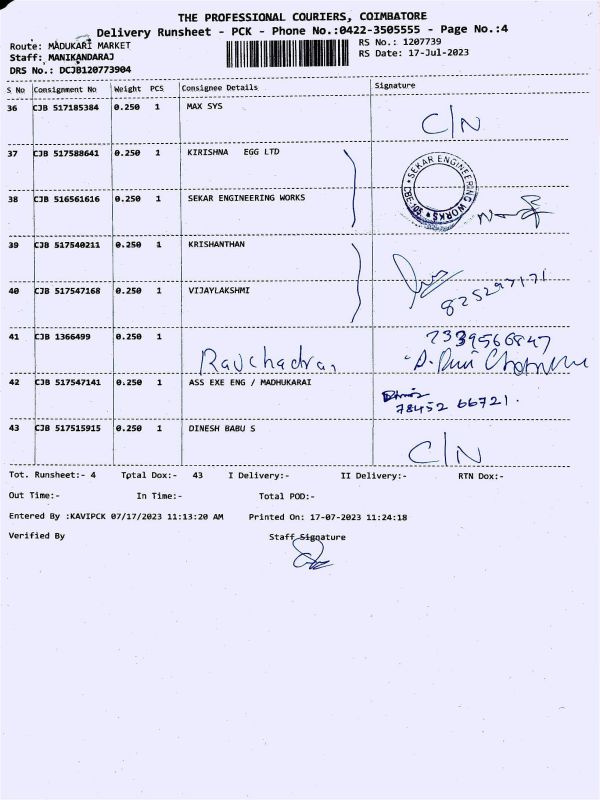 THE PROFESSIONAL COURIERS, COIMBATORE
Delivery Runsheet - PCK - Phone No.:0422-3505555 - Page No.:4
Route: MADUKARI MARKET
RS No.: 1207739
Staff: MANIKANDARAJ
RS Date: 17-Jul-2023
DRS No.: DCJB120773904
S No Consignment No Weight PCS Consignee Details Signature
36 CJB 517185384 0.250 1 MAX SYS
C/N
37 CJB 517588641 0.250 1 KIRISHNA EGG LTD
SEKAR ENGINEERING WORKS
38 CJB 516561616 0.250 1 SEKAR ENGINEERING WORKS
39 CJB 517540211 0.250 1 KRISHANTHAN
40 CJB 517547168 0.250 1 VIJAYLAKSHMI
41 CJB 1366499 0.250 1
42 CJB 517547141 0.250 1 ASS EXE ENG / MADHUKARAI
78452 66721.
43 CJB 517515915 0.250 1 DINESH BABU S
C/N
Tot. Runsheet:- 4 Total Dox:- 43 I Delivery:- II Delivery:- RTN Dox:-
Out Time:- In Time:- Total POD:-
Entered By :KAVIPCK 07/17/2023 11:13:20 AM Printed On: 17-07-2023 11:24:18
Verified By Staff Signature